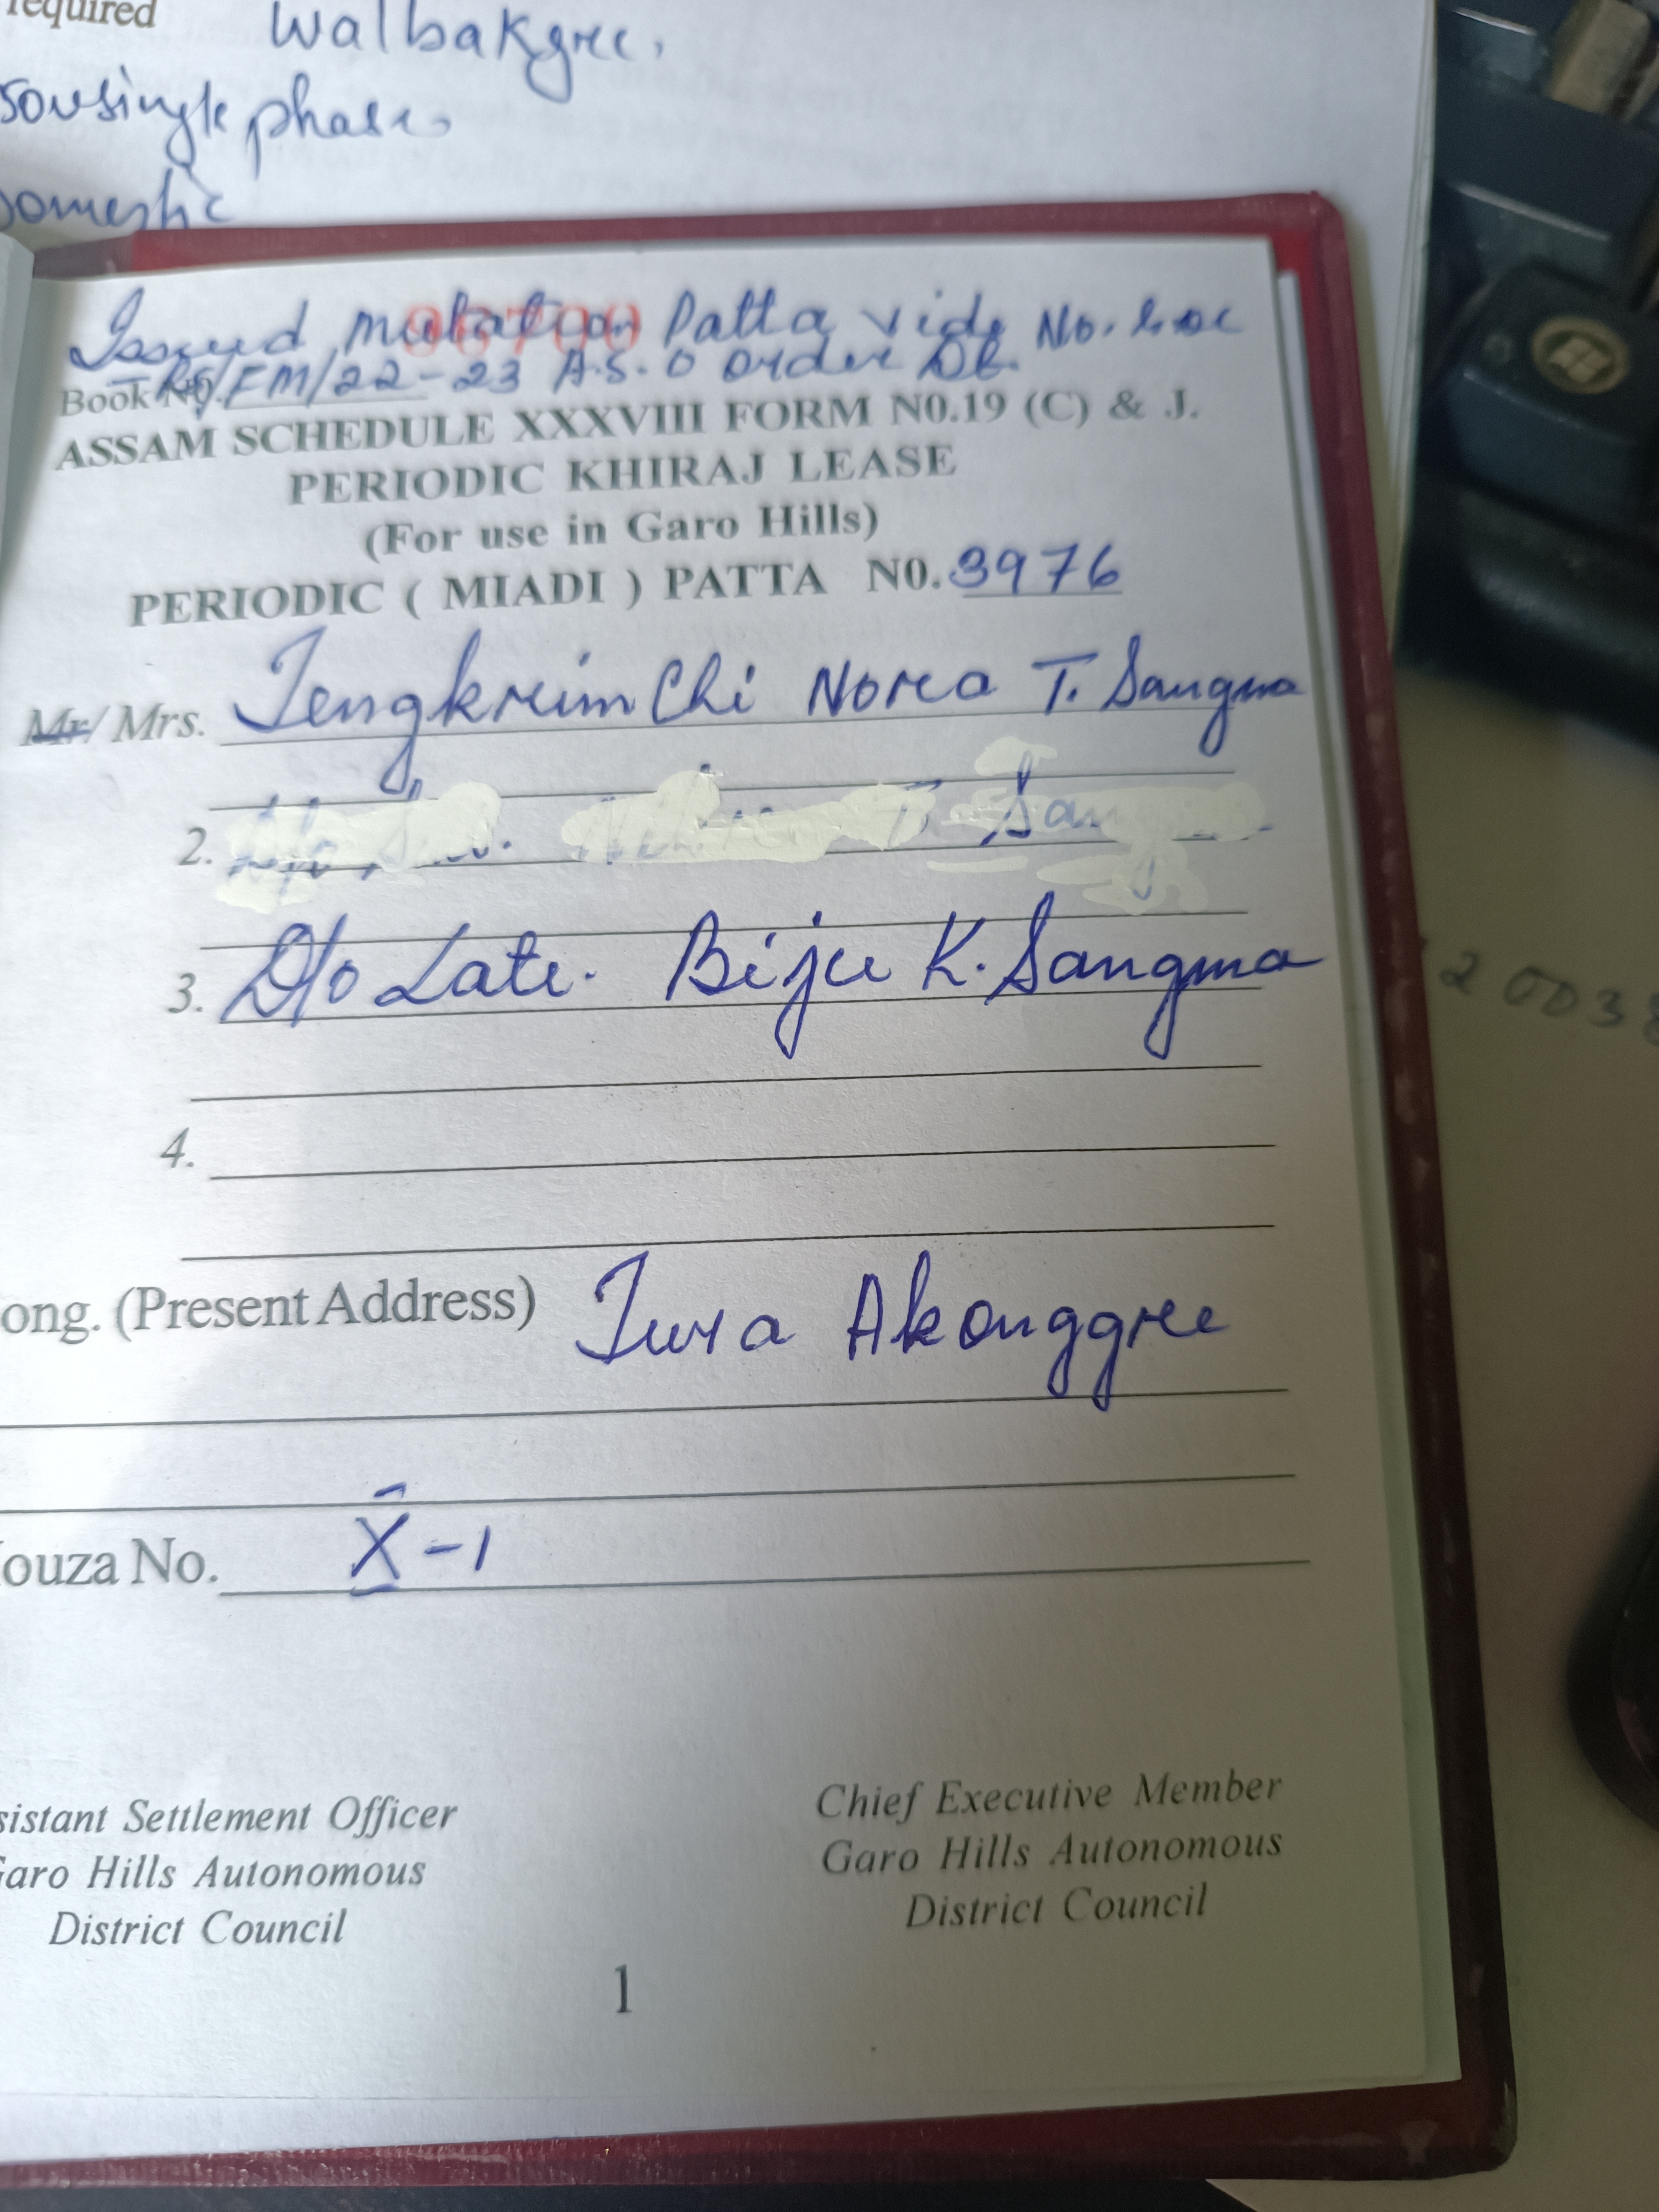 required Walbakgre.
single phase
Domestic
Issued mutation Patta vide No.
/FM/22-23 A.S.O order Dt.
Book No.
ASSAM SCHEDULE XXXVIII FORM N0.19 (C) & J.
PERIODIC KHIRAJ LEASE
(For use in Garo Hills)
PERIODIC ( MIADI ) PATTA N0. 3976
Mr/ Mrs. Tengkrim Chi Nora T. Sangma
2. D/o T. Sangma
3. D/o Late. Biju K. Sangma
4.
ong. (Present Address) Tura Akonggre
ouza No. X-1
sistant Settlement Officer
Garo Hills Autonomous
District Council
Chief Executive Member
Garo Hills Autonomous
District Council
1